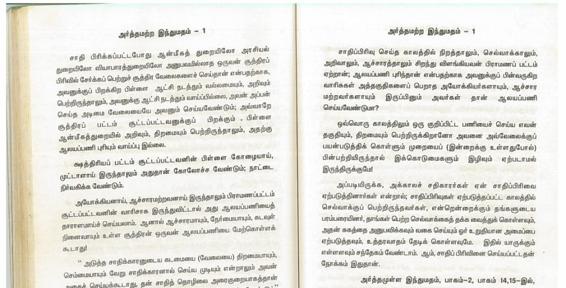 அர்த்தமற்ற இந்துமதம் - 1
சாதி பிரிக்கப்பட்டபோது ஆன்மீகத் துறையிலோ அரசியல்
துறையிலோ வியாபாரத்துறையிலோ அனுபவமில்லாத ஒருவன் சூத்திரப்
பிரிவில் சேர்க்கப் பெற்றுச் சூத்திர வேலைகளைச் செய்தான் என்பதற்காக,
அவனுக்குப் பிறக்கிற பிள்ளை ஆட்சி நடத்தும் வல்லமையும், அறிவும்
பெற்றிருந்தாலும், அவனுக்கு ஆட்சி நடத்தும் வாய்ப்பில்லை, அவன் அப்பன்
செய்த அடிமை வேலையையே அவனும் செய்யவேண்டும்; அவ்வாறே
சூத்திரப் பட்டம் சூட்டப்பட்டவனுக்குப் பிறக்கும் பிள்ளை
ஆன்மீகத்துறையில் அறிவும், திறமையும் பெற்றிருந்தாலும், அதற்கு
ஆலயப்பணி புரியும் வாய்ப்பு இல்லை.
க்ஷத்திரியப் பட்டம் சூட்டப்பட்டவனின் பிள்ளை கோழையாய்,
முட்டாளாய் இருந்தாலும் அதுதான் கோலோச்ச வேண்டும்; நாட்டை
நிர்வகிக்க வேண்டும்.
அயோக்கியனாய், ஆச்சாரமற்றவனாய் இருந்தாலும் பிராமணப்பட்டம்
சூட்டப்பட்டவனின் வாரிசாக இருந்துவிட்டால் அது ஆலயப்பணியைத்
தாராளமாய்ச் செய்யலாம். ஆனால் ஆச்சாரமும், நேர்மையும், கடவுள்
நினைவாயும் உள்ள சூத்திரன் ஒருவன் ஆலயப்பணியை மேற்கொள்ளக்
கூடாது!
" அடுத்த சாதிக்காரனுடைய கடமையை (வேலையை) திறமையாயும்,
செம்மையாயும் வேறு சாதிக்காரனால் செய்ய முடியும் என்றாலும் அவன்
அதைச் செய்யக்கூடாது. தன் சாதித் தொழிலை அரைகுறையாகத்தான்
அர்த்தமற்ற இந்துமதம் - 1
சாதிப்பிரிவு செய்த காலத்தில் நிறத்தாலும், செல்வாக்காலும்,
அறிவாலும், ஆச்சாரத்தாலும் சிறந்து விளங்கியவன் பிராமணப் பட்டம்
ஏற்றான்; ஆலயப்பணி புரிந்தான் என்பதற்காக அவனுக்குப் பின்வருகிற
வாரிசுகள் அத்தகுதிகளைப் பெறாத அயோக்கியர்களாயும், ஆச்சார
மற்றவர்களாயும் இருப்பினும் அவர்கள் தான் ஆலயப்பணி
செய்யவேண்டுமா?
ஒவ்வொரு காலத்திலும் ஒரு குறிப்பிட்ட பணியைச் செய்ய எவன்
தகுதியும், திறமையும் பெற்றிருக்கிறானோ அவனை அவ்வேலைக்குப்
பயன்படுத்திக் கொள்ளும் முறையைப் (இன்றைக்கு உள்ளதுபோல்)
பின்பற்றியிருந்தால் இக்கொடுமைகளும் இழிவும் ஏற்படாமல்
இருந்திருக்குமே!
அப்படியிருக்க, அக்காலச் சதிகாரர்கள் ஏன் சாதிப்பிரிவை
ஏற்படுத்தினார்கள் என்றால்; சாதிப்பிரிவுகள் ஏற்படுத்தப்பட்ட காலத்தில்
செல்வாக்குப் பெற்றிருந்தவர்கள், என்றென்றைக்கும் தங்களுடைய
பரம்பரையினர், தாங்கள் பெற்ற செல்வாக்கைத் தக்க வைத்துக் கொள்ளவும்,
அதன் சுகத்தை அனுபவிக்கவும் வகை செய்யும் ஓர் உறுதியான அமைப்பை
ஏற்படுத்தவும், உத்தரவாதம் தேடிக் கொள்ளவுமே. இதில் யாருக்கும்
எள்ளளவும் சந்தேகம் வேண்டாம். ஆம், சாதிப் பிரிவினை செய்யப்பட்டதன்
நோக்கம் இதுதான்.
அர்த்தமுள்ள இந்துமதம், பாகம்-2, பாகம் 14,15-இல்,